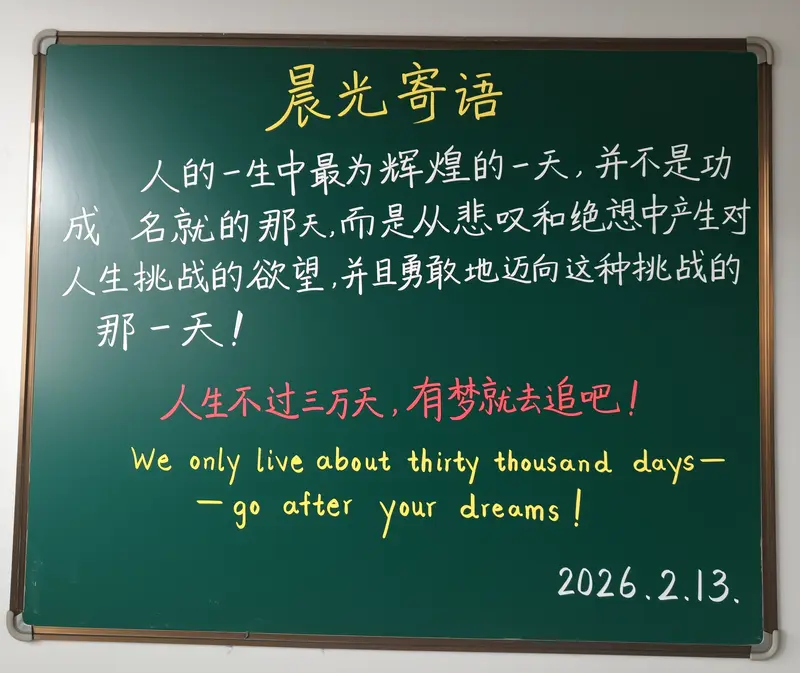 晨光寄语
人的一生中最为辉煌的一天,并不是功
成 名就的那天,而是从悲叹和绝想中产生对
人生挑战的欲望,并且勇敢地迈向这种挑战的
那一天!
人生不过三万天,有梦就去追吧!
We only live about thirty thousand days—
—go after your dreams!
2026.2.13.